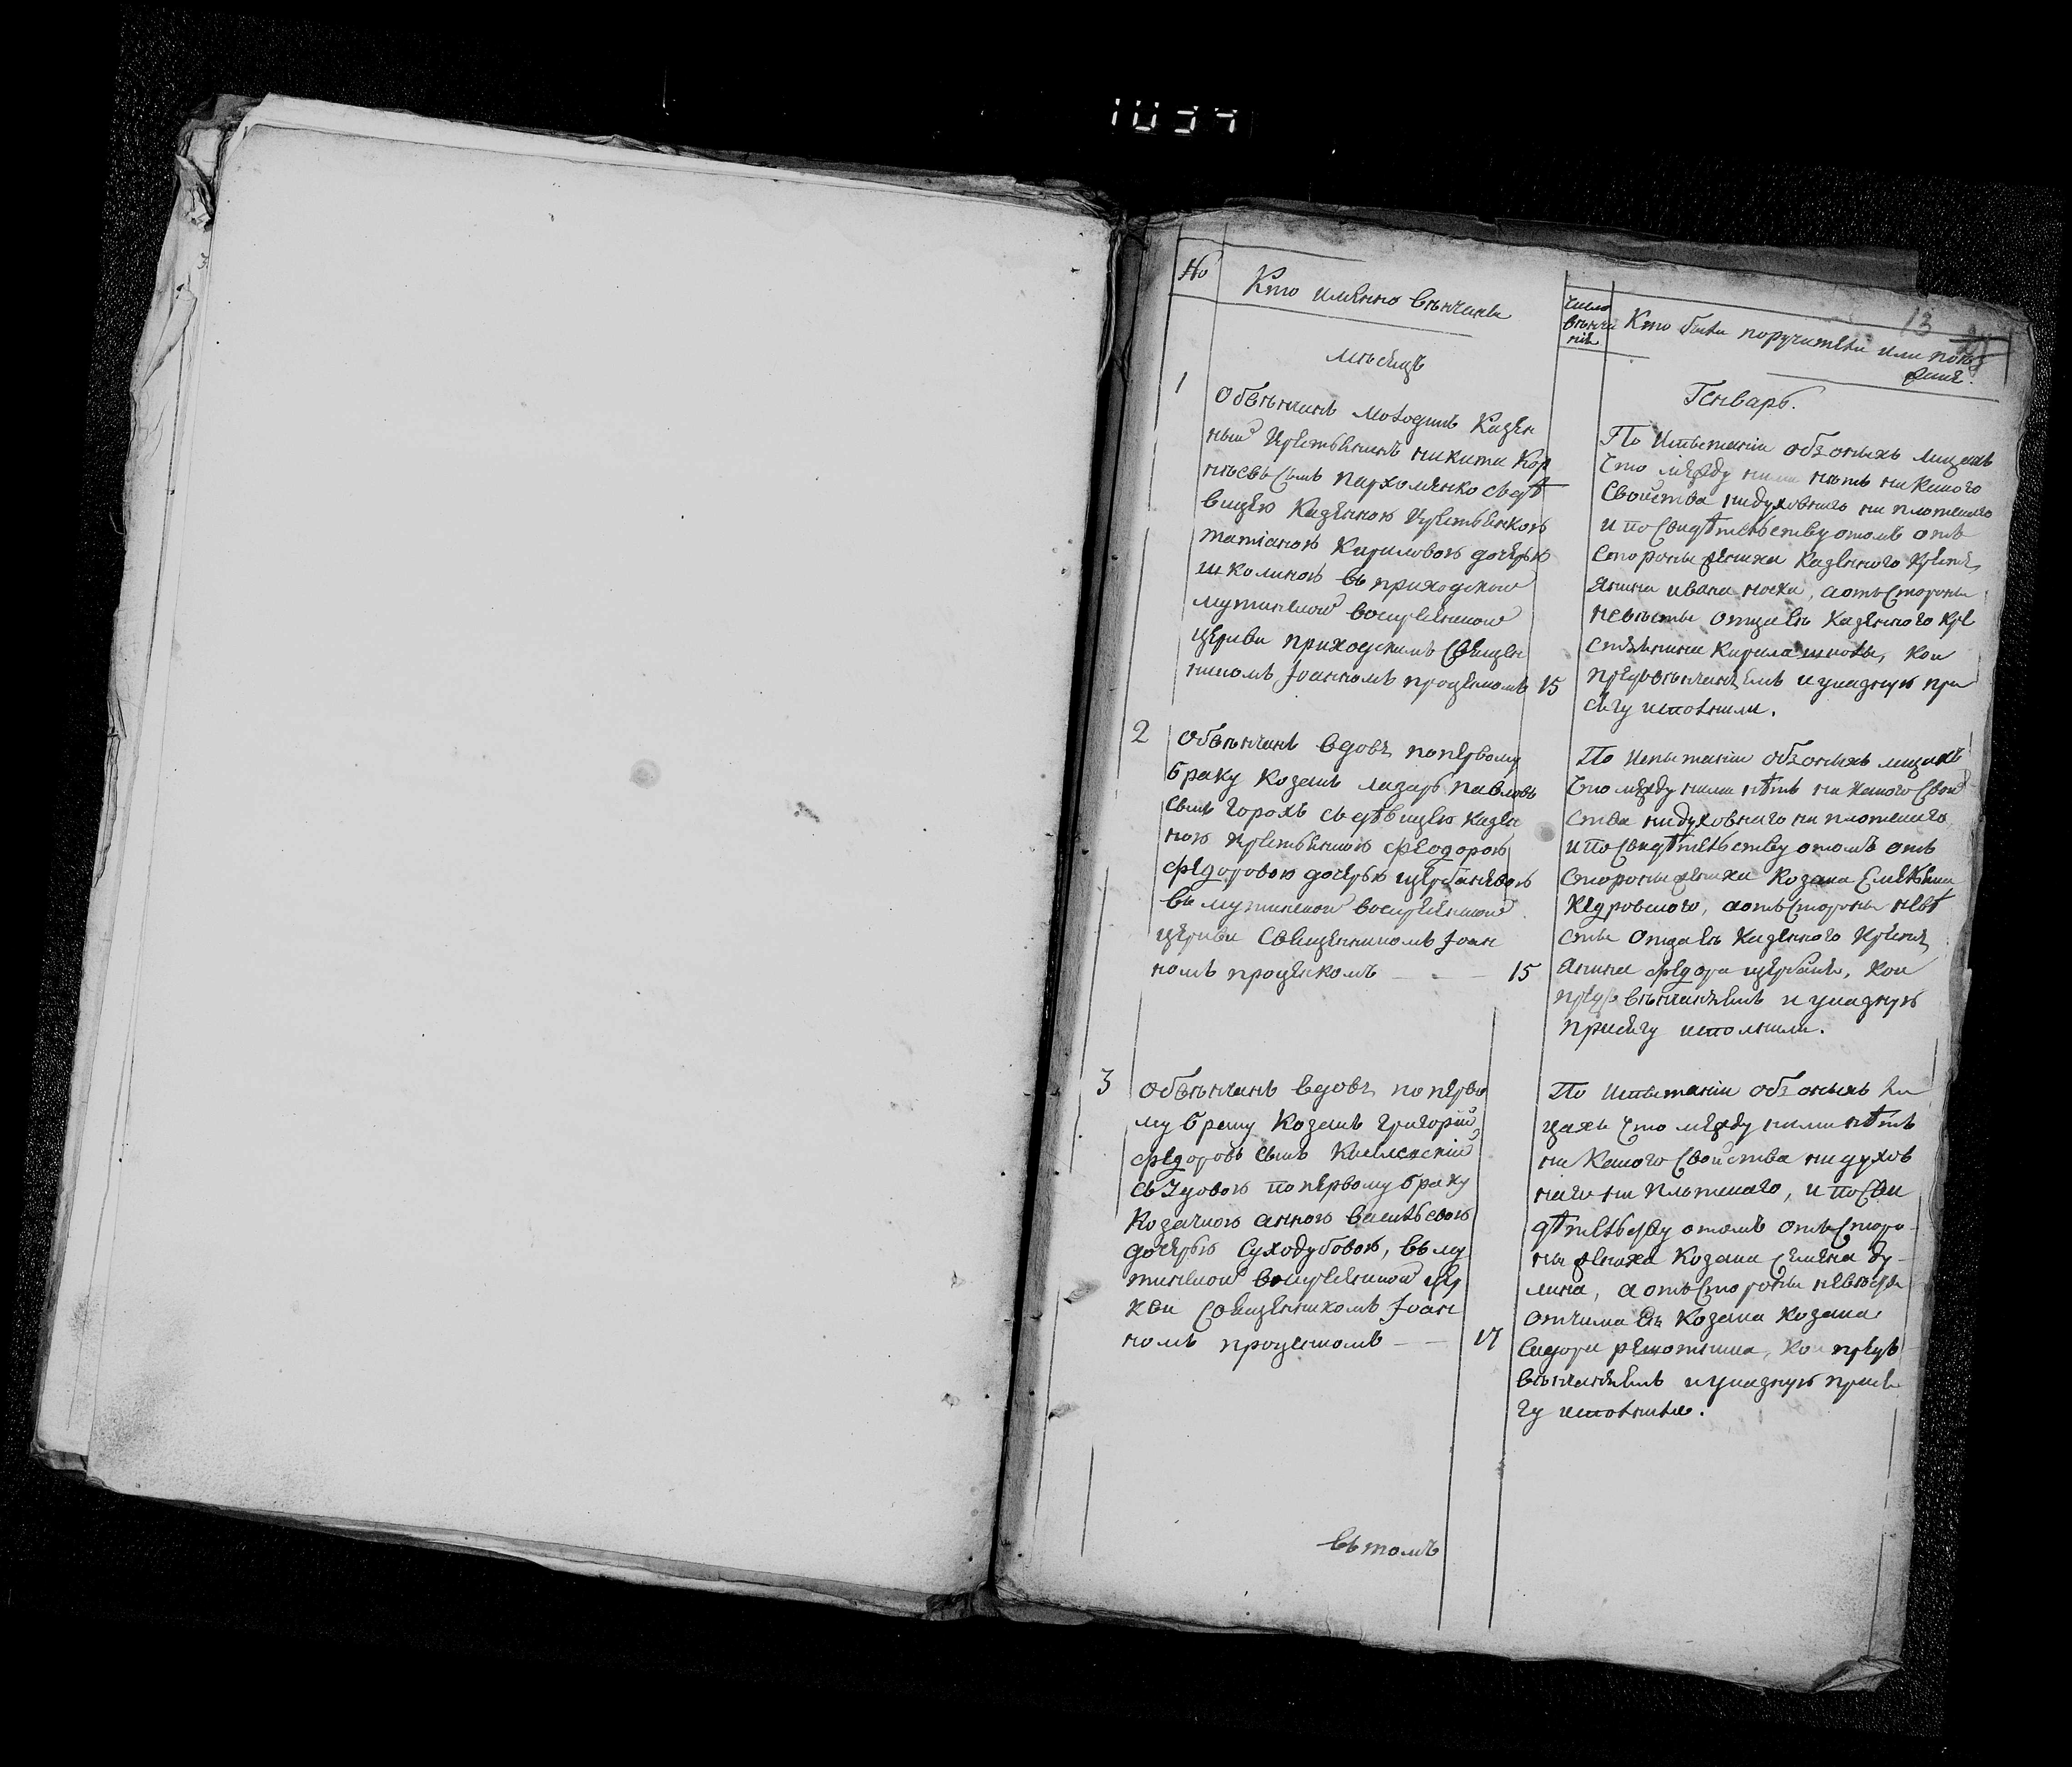 1034
13
№
Кто именно венчаны
число
венча
нія
Кто были поручители или поез
жане.
месяцъ
Генварь.
1
Обвенчанъ молодикъ Казен
ный Крестьянинъ никита Кор
неевъ сынъ пархоменко съ дѣ
вицею Казенною Крестьянкою
татіаною Кириловою дочерью
школиною въ приходской
мутинской воскресенской
церкви приходскимъ Священ
никомъ Іоанномъ проценкомъ 15
По Испытаніи обзоныхъ лицахъ
Что между ними нетъ ни какого
Свойства ни духовнаго ни плотскаго
и по Свидѣтельству отомъ отъ
Стороны жениха Казенного Крестъ
янина ивана носка, а отъ Стороны
невесты отца ея Казенного Кре
стьянина Кирила школы, кои
предъ венчаніемъ и указную при
сягу исполнили.
2
Обвенчанъ вдовъ по первому
браку Козакъ лазарь павловъ
сынъ горохъ съ дѣвицею казен
ною крестьянкою феодорою
федоровою дочерью щербаневою
въ мутинской воскресенской
церкви Священникомъ Іоан
номъ проценкомъ — — — 15
По Испытаніи обзоныхъ лицахъ
Что между ними нѣтъ ни какого Свой
ства ни духовнаго ни плотскаго
и по Свидѣтельству отомъ отъ
стороны жениха Козака Емельяна
Кедровского, а отъ Стороны невѣ
сты отца ея Казенного Крестъ
янина федора щербаня, кои
предъ венчаніемъ и указную
присягу исполнили.
3
Обвенчанъ вдовъ по перво
му браку Козакъ григорій
федоровъ сынъ
съ Удовою по первому браку
Козачкою анною васильевою
дочерью Суходубовою, въ му
тинской воскресенской цер
кви Священникомъ Іоан
номъ проценкомъ — — 17
По Испытаніи обзоныхъ ли
цахъ Что между ними нѣтъ
ни какого Свойства ни духов
наго ни плотскаго, и по Сви
дѣтельству отомъ отъ Сторо
ны жениха Козака Семена Ду
лина, а отъ Стороны невесты
отчима ея Козака Козака
Сидора, кои предъ
венчаніемъ и указную прися
гу исполнили.
въ томъ